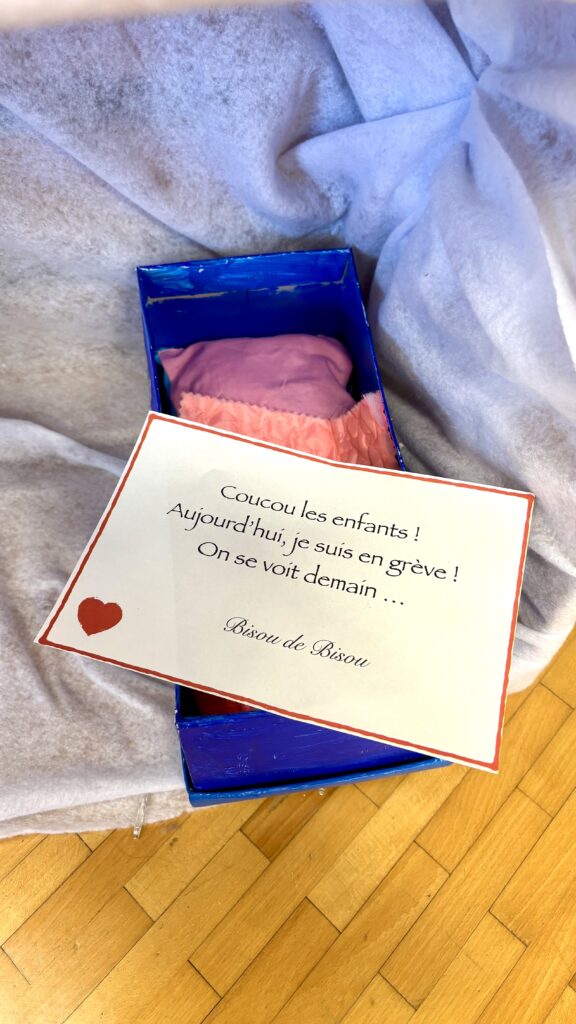 Coucou les enfants !
Aujourd'hui, je suis en grève !
On se voit demain ...
Bisou de Bisou